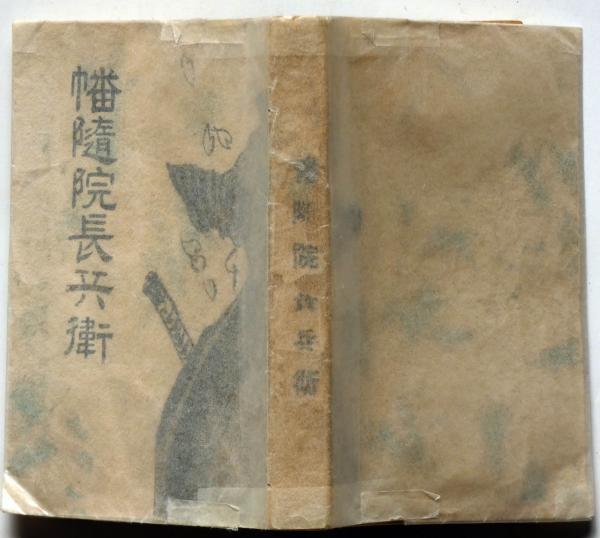 幡隨院長兵衛
幡隨院長兵衛